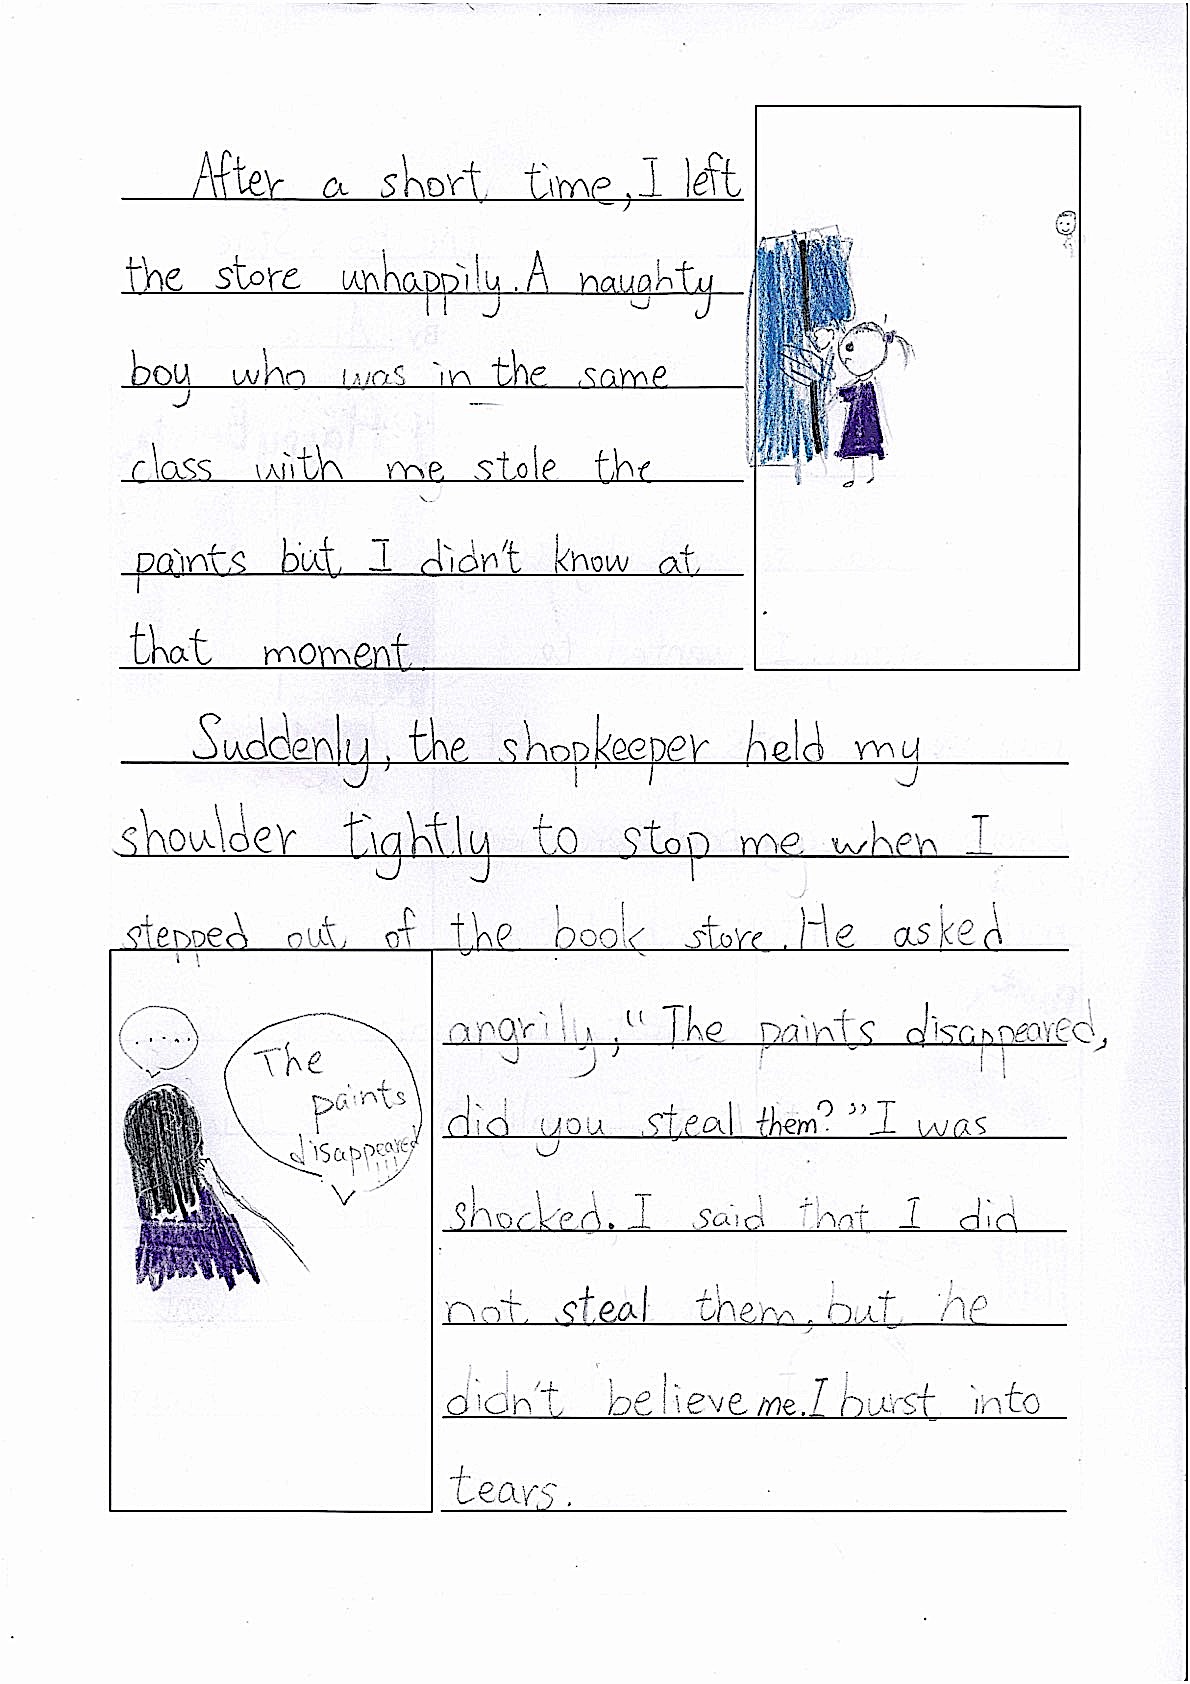 After a short time, I left
the store unhappily. A naughty
boy who was in the same
class with me stole the
paints but I didn't know at
that moment.
Suddenly, the shopkeeper held my
shoulder tightly to stop me when I
stepped out of the book store. He asked
angrily, "The paints disappeared,
did you steal them?" I was
shocked. I said that I did
not steal them, but he
didn't believe me. I burst into
tears.
.....
The
paints
disappeared
!!!